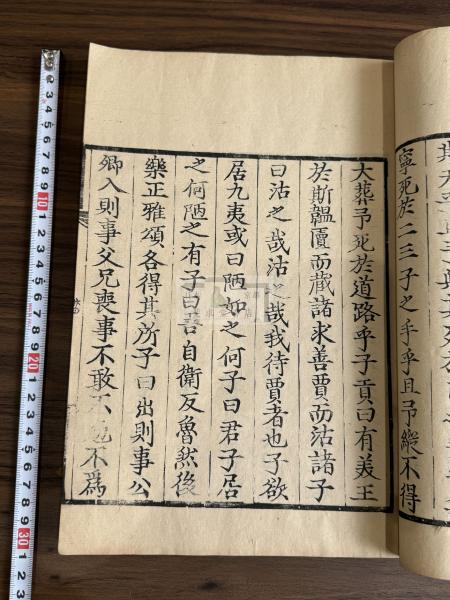 寧死於二三子之手乎且予縱不得
大葬予死於道路乎子貢曰有美玉
於斯韞匵而藏諸求善賈而沽諸子
曰沽之哉沽之哉我待賈者也子欲
居九夷或曰陋如之何子曰君子居
之何陋之有子曰吾自衛反魯然後
樂正雅頌各得其所子曰出則事公
卿入則事父兄喪事不敢不勉不為
2 3 4 5 6 7 8 9 10 1 2 3 4 5 6 7 8 9 20 1 2 3 4 5 6 7 8 9 30 1 2